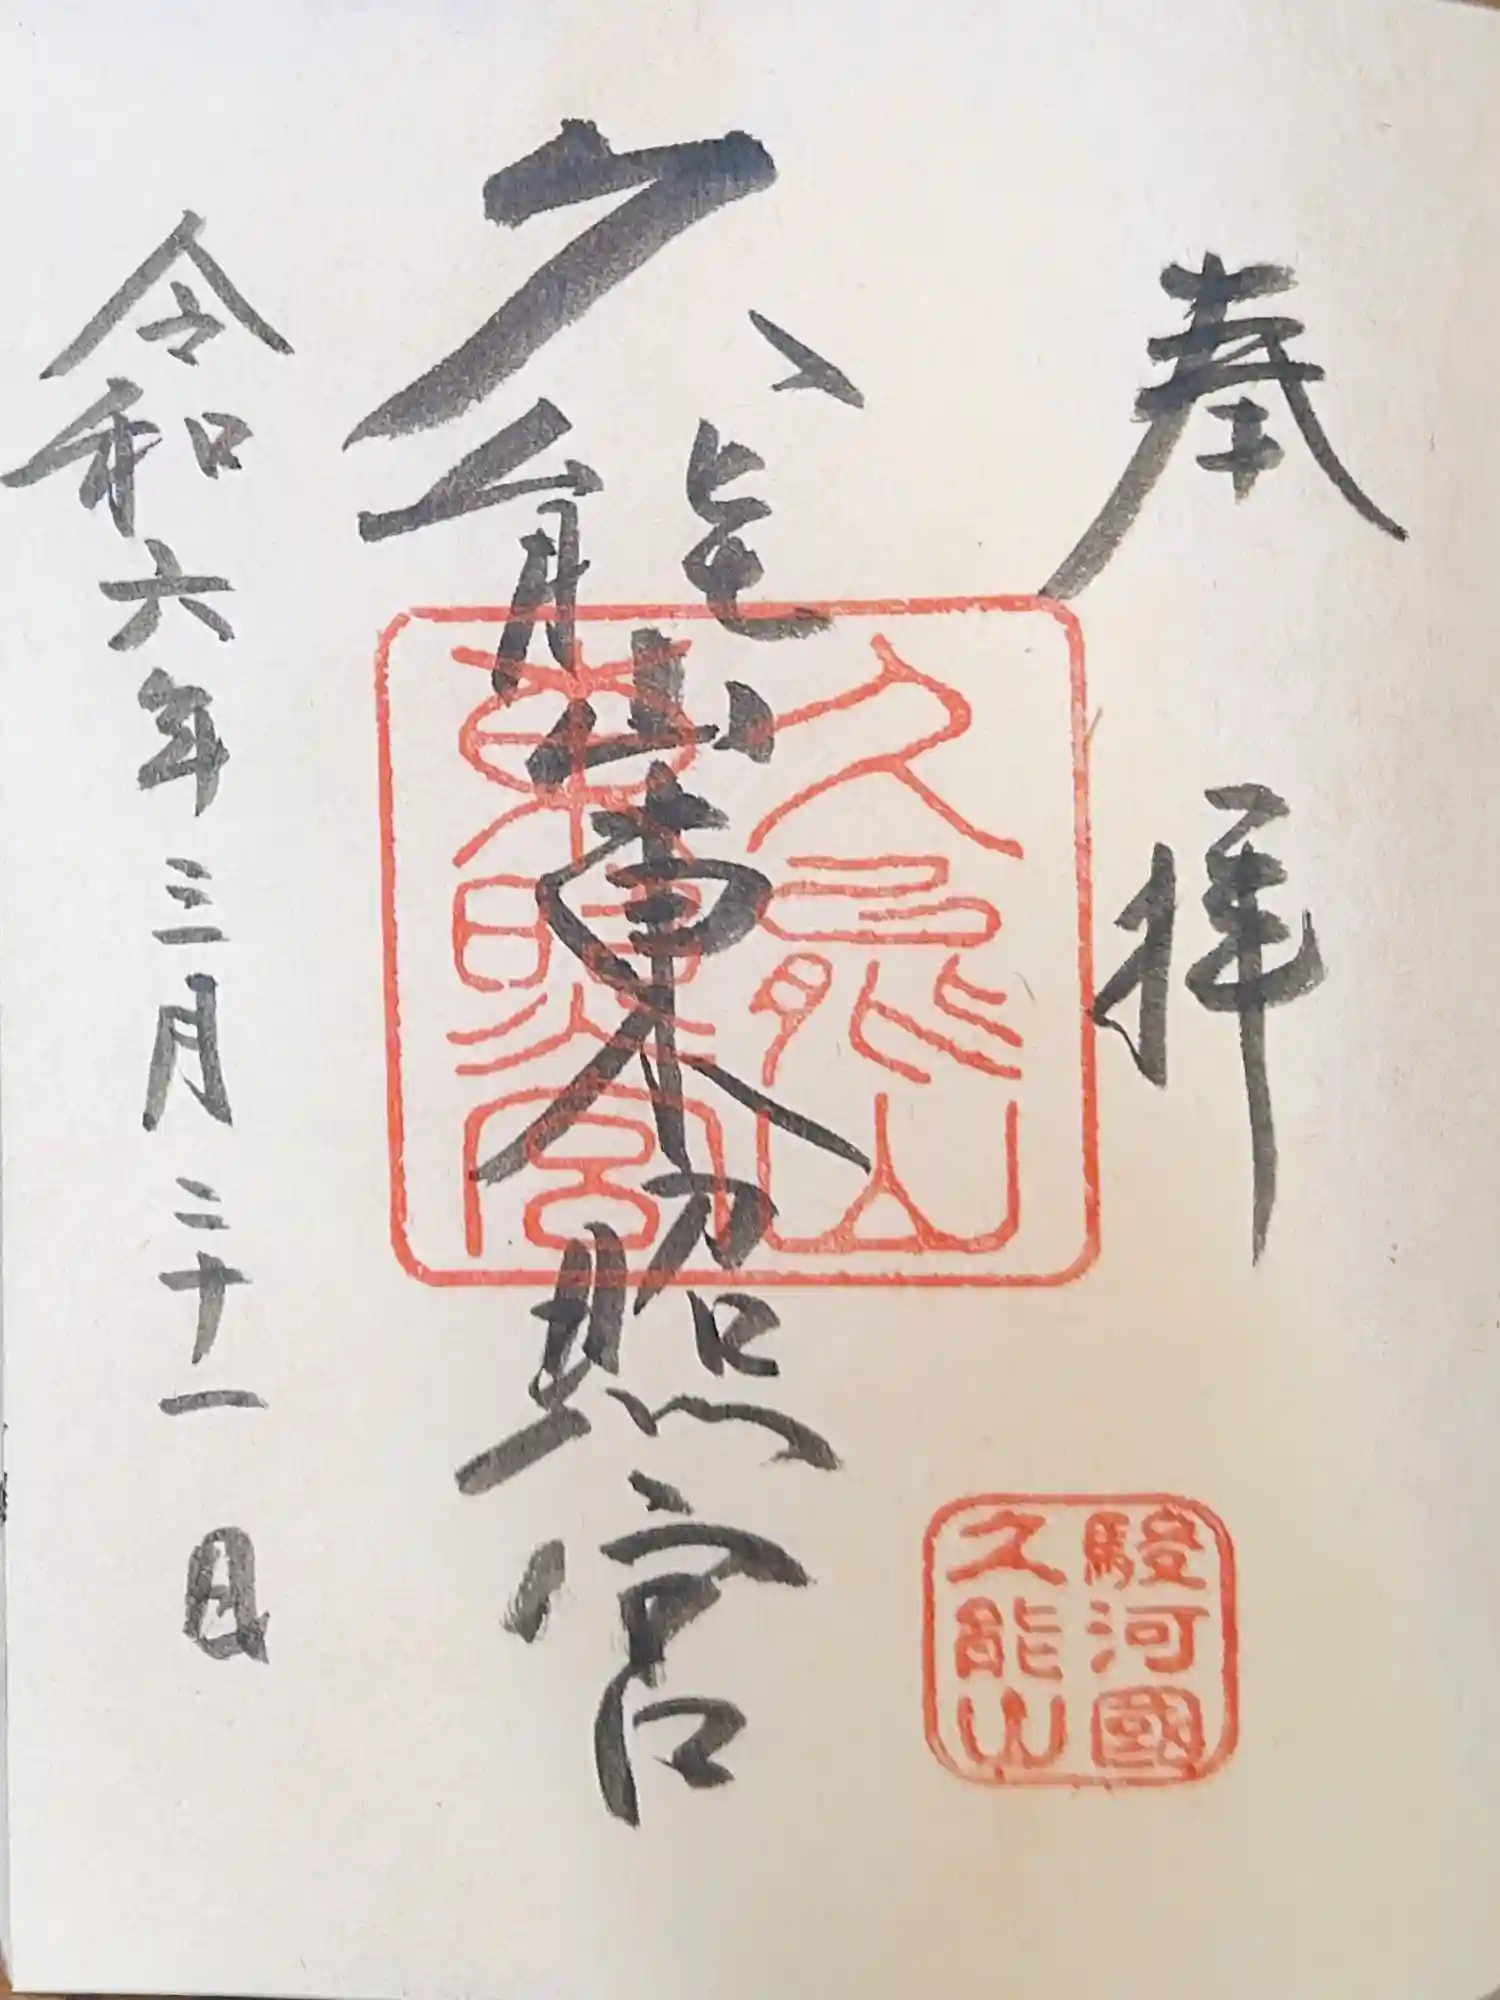 奉拝
久能山東照宮
令和六年三月二十一日
久能山
東照宮
駿河國
久能山